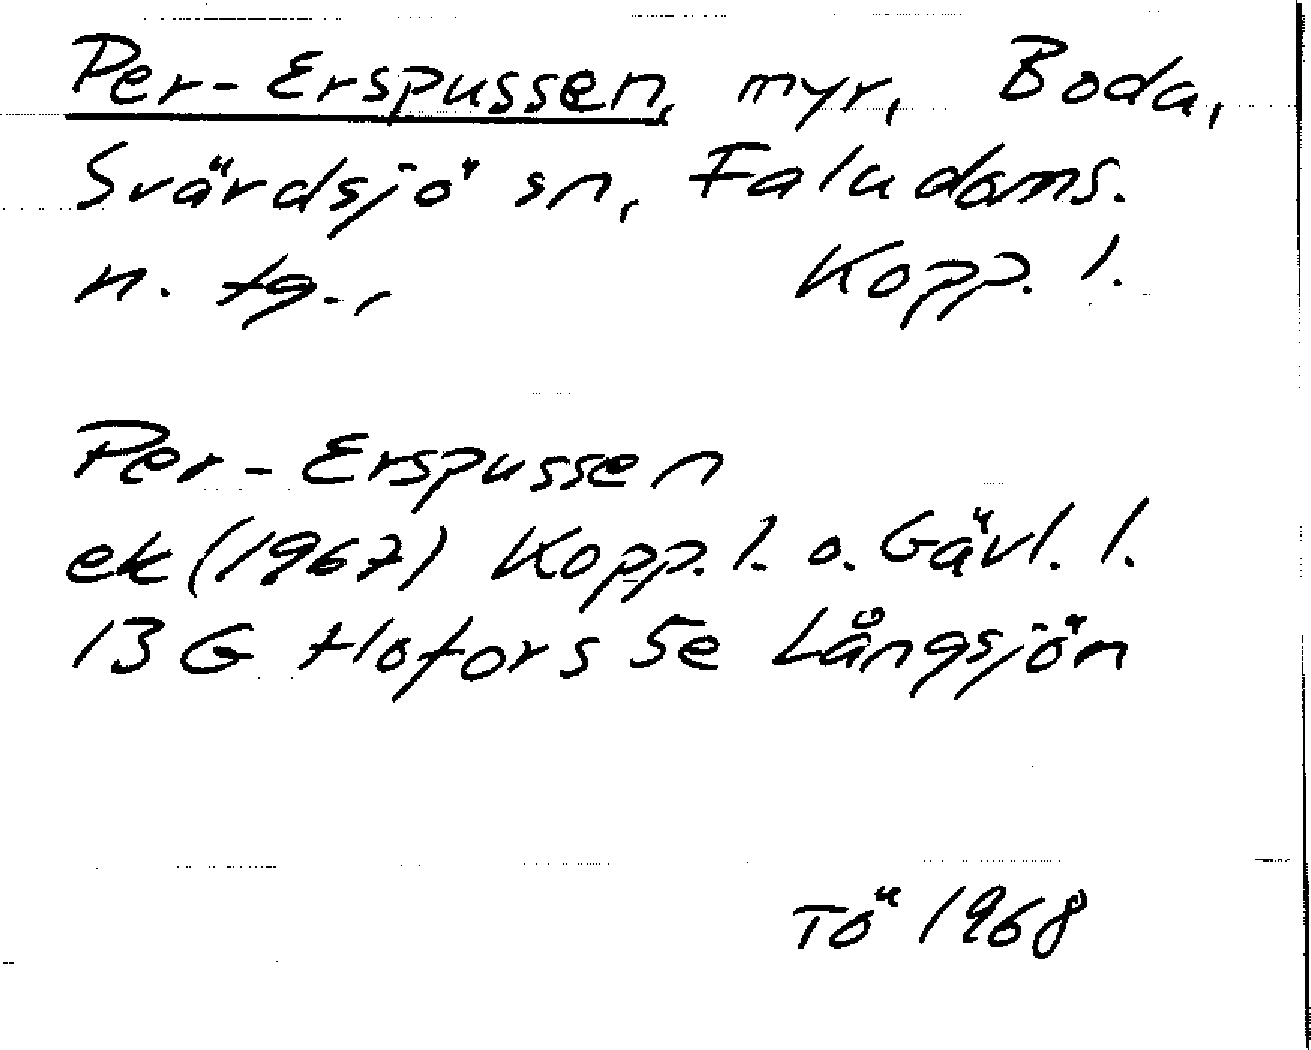 Per-Erspussen, myr, Boda,
Svärdsjö sn, Faludoms.
n. tg., Kopp. l.
Per-Erspussen
ek (1967) Kopp. l. o. Gävl. l.
13 G Hofors 5e Långsjön
TÖ 1968